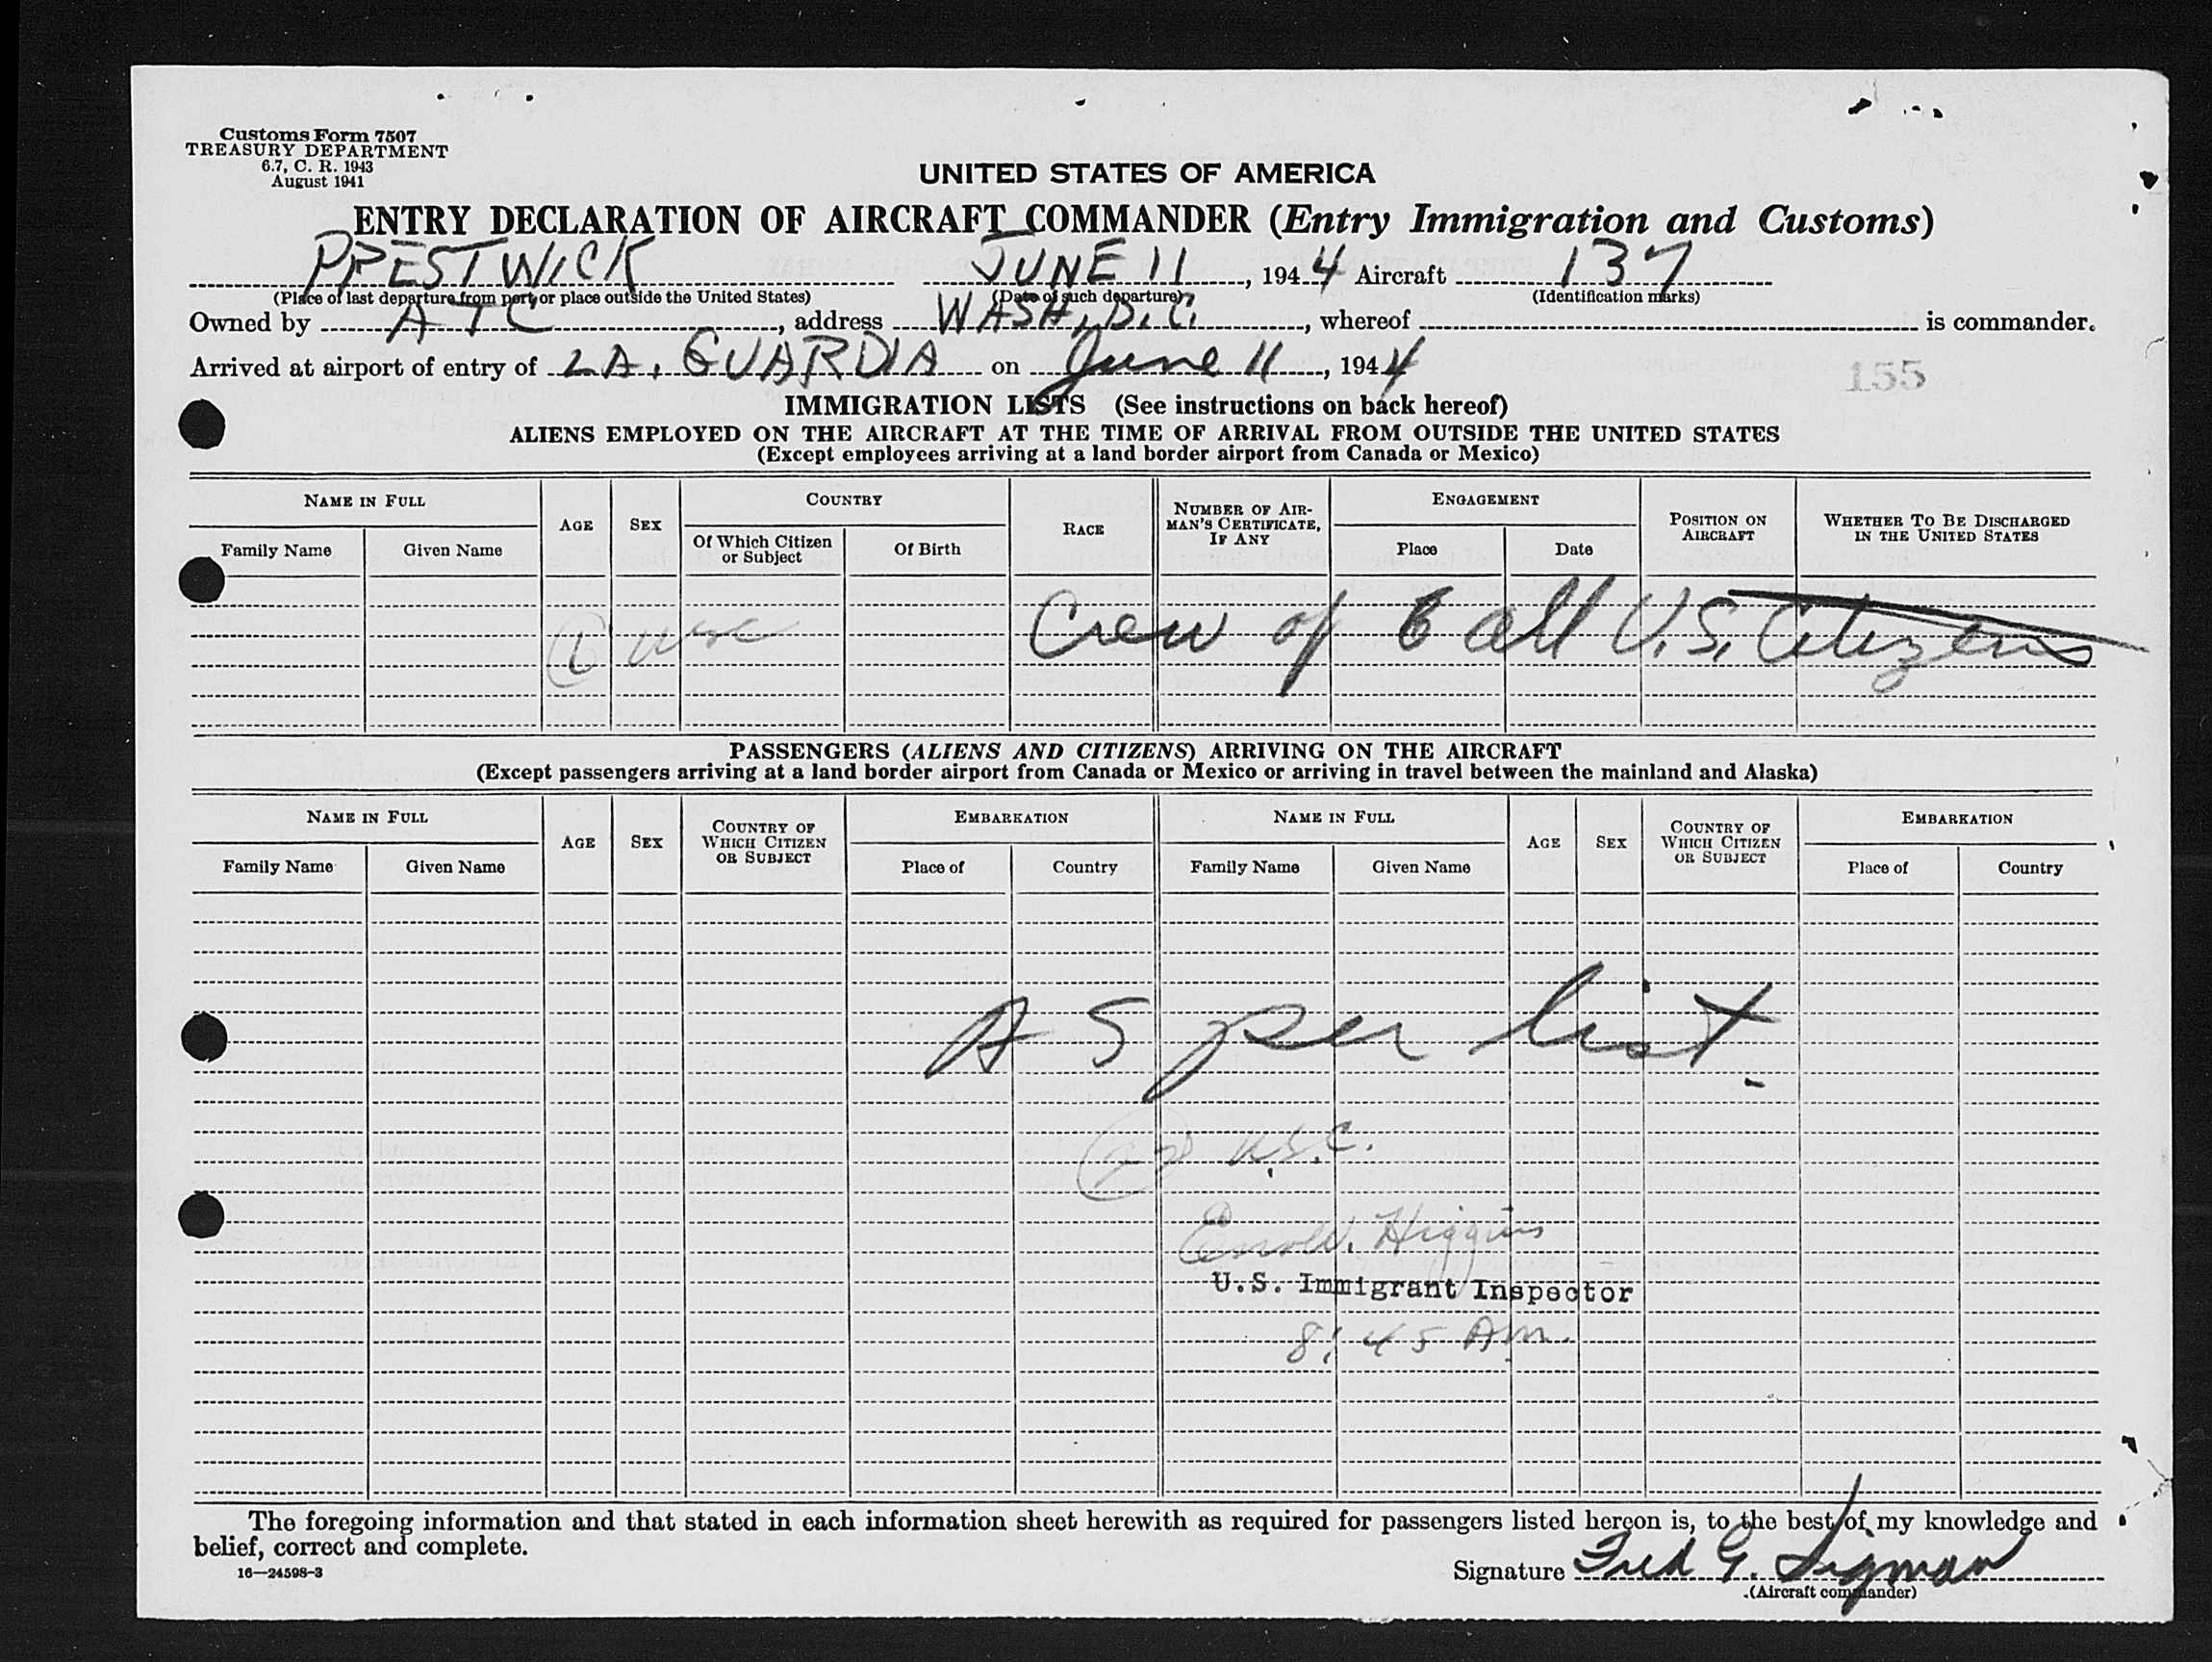 Customs Form 7507
TREASURY DEPARTMENT
6.7, C. R. 1943
August 1941
UNITED STATES OF AMERICA
ENTRY DECLARATION OF AIRCRAFT COMMANDER (Entry Immigration and Customs)
PRESTWICK JUNE 11, 1944 Aircraft 137
(Place of last departure from port or place outside the United States) (Date of such departure) (Identification marks)
Owned by ATC, address WASH, D.C., whereof is commander.
Arrived at airport of entry of LA. GUARDIA on June 11, 1944
155
IMMIGRATION LISTS (See instructions on back hereof)
ALIENS EMPLOYED ON THE AIRCRAFT AT THE TIME OF ARRIVAL FROM OUTSIDE THE UNITED STATES
(Except employees arriving at a land border airport from Canada or Mexico)
NAME IN FULL AGE SEX COUNTRY RACE NUMBER OF AIRMAN'S CERTIFICATE, IF ANY ENGAGEMENT POSITION ON AIRCRAFT WHETHER TO BE DISCHARGED IN THE UNITED STATES
Family Name Given Name Of Which Citizen or Subject Of Birth Place Date
Crew of 6 all U.S. Citizens
PASSENGERS (ALIENS AND CITIZENS) ARRIVING ON THE AIRCRAFT
(Except passengers arriving at a land border airport from Canada or Mexico or arriving in travel between the mainland and Alaska)
NAME IN FULL AGE SEX COUNTRY OF WHICH CITIZEN OR SUBJECT EMBARKATION NAME IN FULL AGE SEX COUNTRY OF WHICH CITIZEN OR SUBJECT EMBARKATION
Family Name Given Name Place of Country Family Name Given Name Place of Country
AS per list.
U.S.C.
Higgins
U.S. Immigrant Inspector
8:45 AM.
The foregoing information and that stated in each information sheet herewith as required for passengers listed hereon is, to the best of my knowledge and
belief, correct and complete.
16—24598-3
Signature Fred G. Sigman
(Aircraft commander)